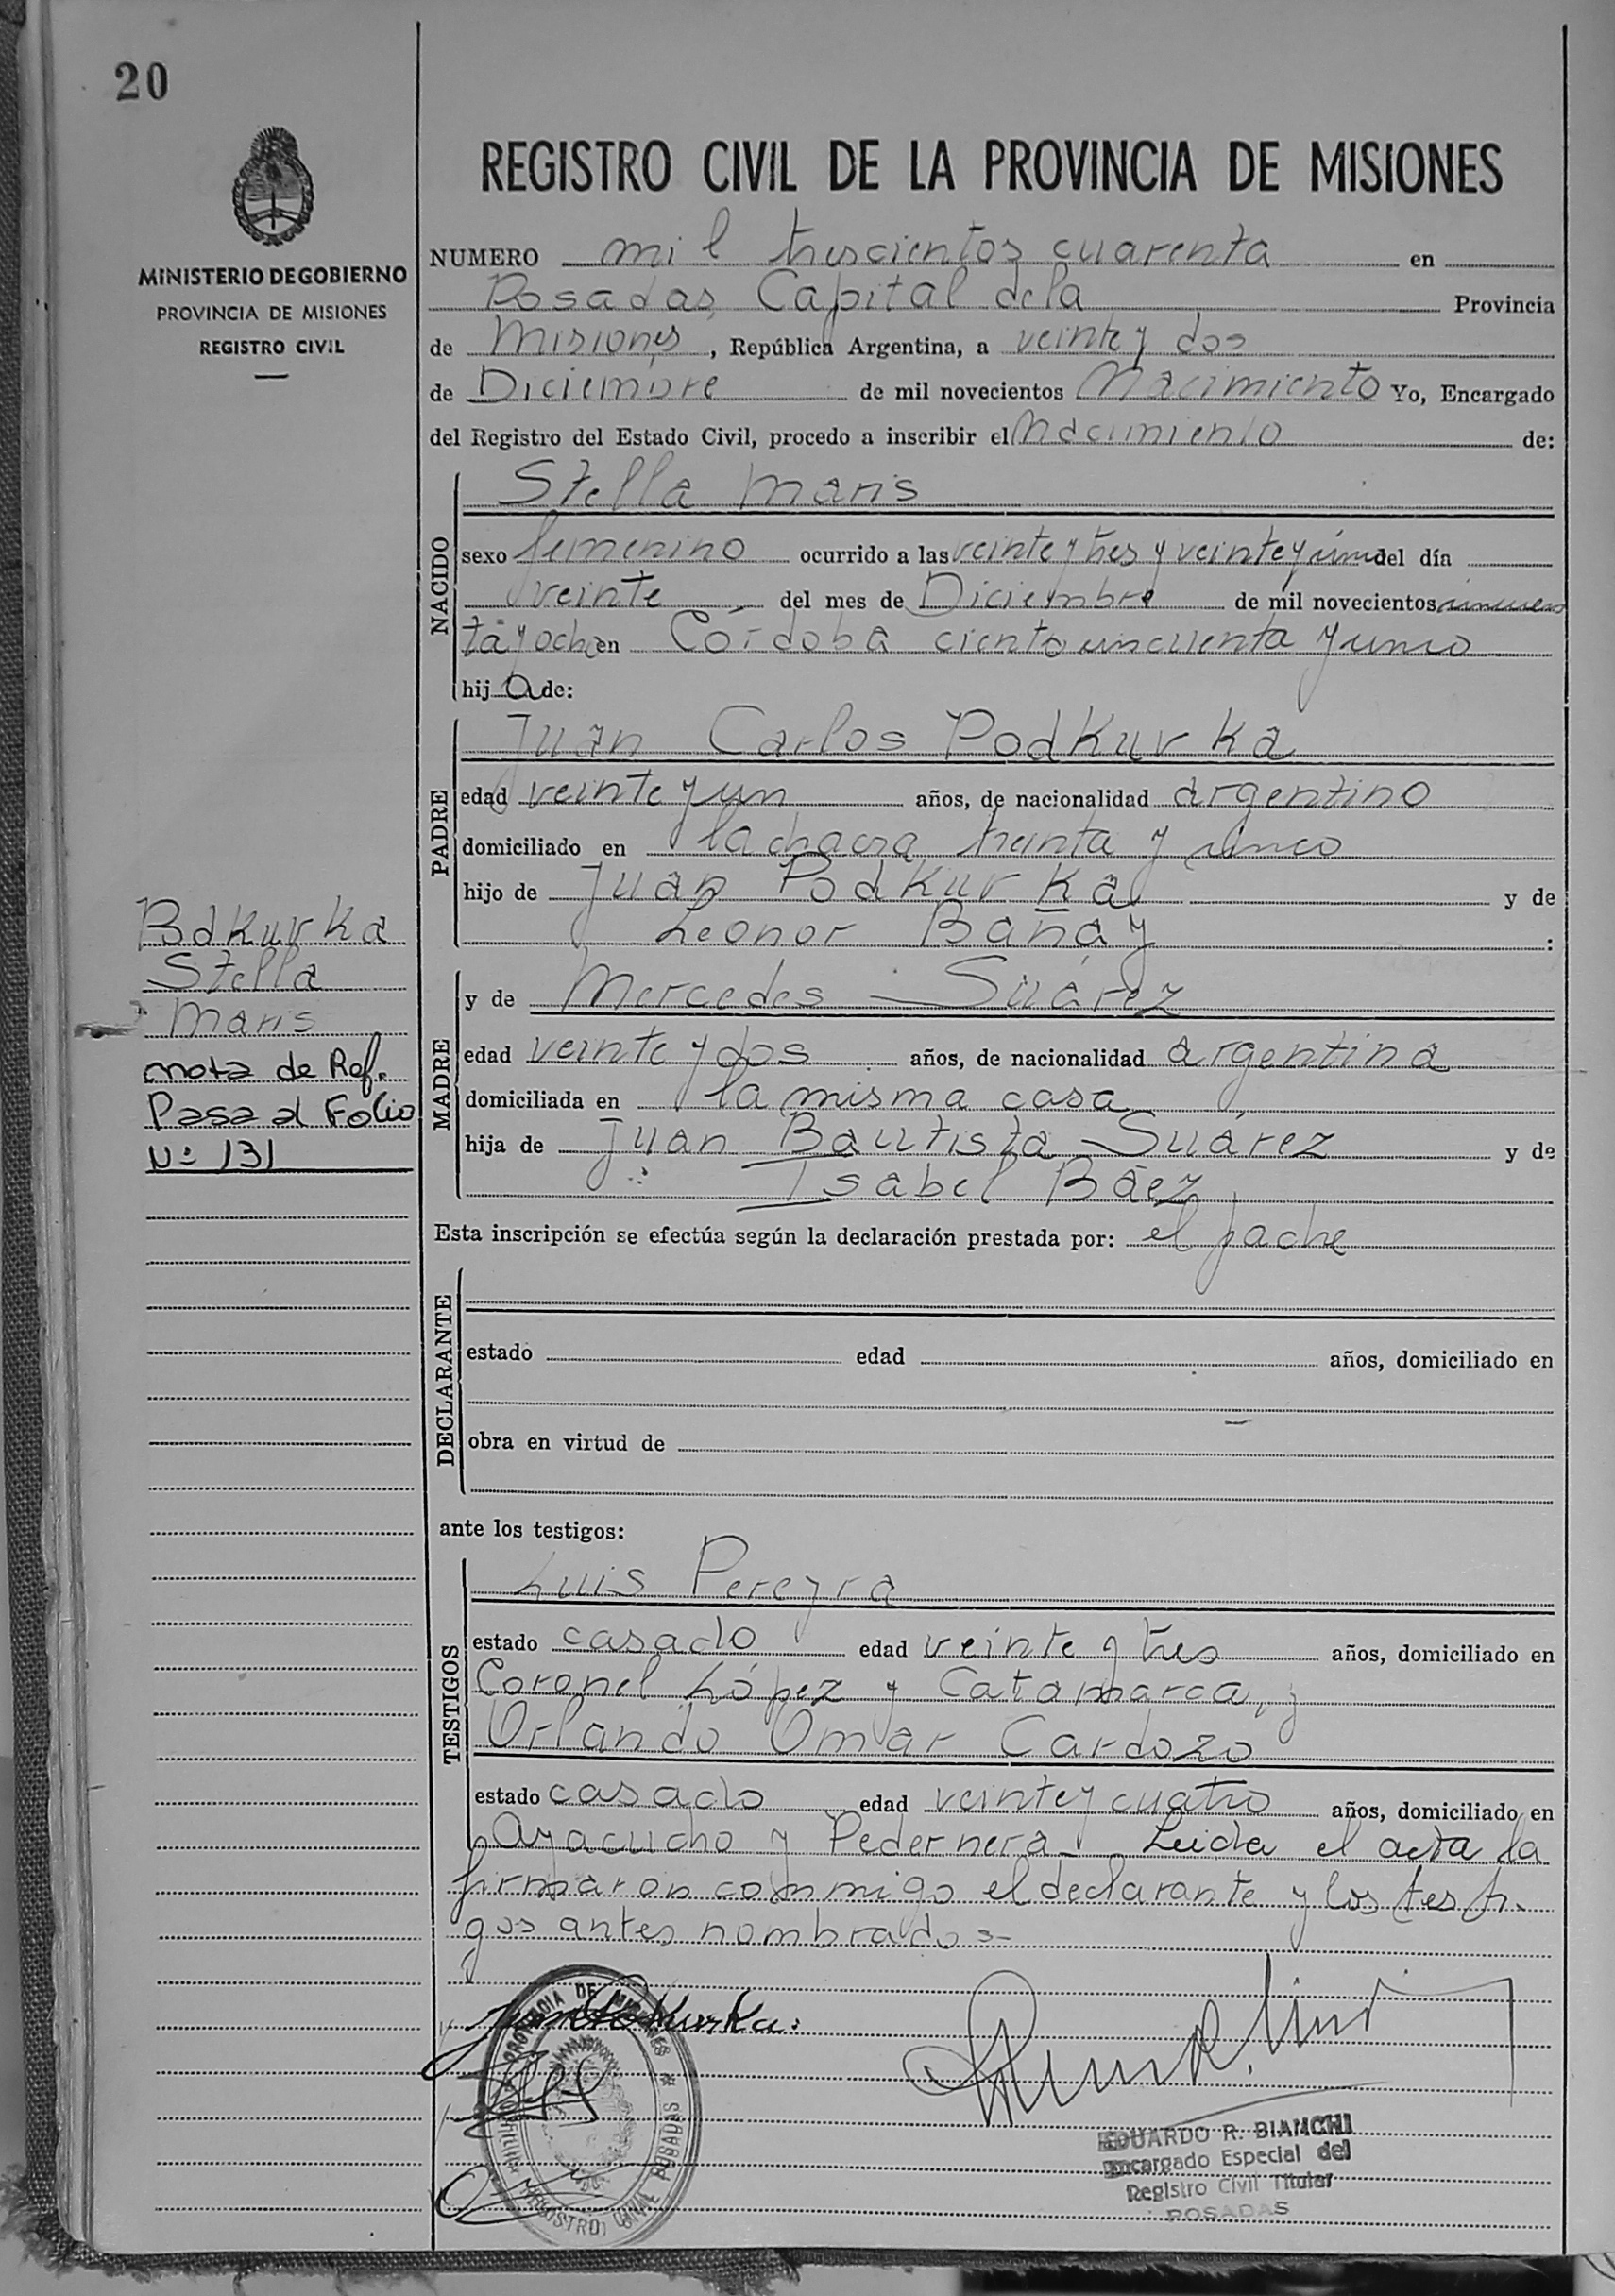 20
MINISTERIO DE GOBIERNO
PROVINCIA DE MISIONES
REGISTRO CIVIL
REGISTRO CIVIL DE LA PROVINCIA DE MISIONES
NUMERO mil trescientos cuarenta en
Posadas, Capital de la Provincia
de Misiones, República Argentina, a veinte y dos
de Diciembre de mil novecientos Nacimiento Yo, Encargado
del Registro del Estado Civil, procedo a inscribir el Nacimiento de:
NACIDO
Stella Maris
sexo femenino ocurrido a las veinte y tres y veinte y cinco del día
veinte del mes de Diciembre de mil novecientos cincuen
ta y ocho en Córdoba ciento cincuenta y cinco
hij a de:
PADRE
Juan Carlos Podkurka
edad veinte y un años, de nacionalidad argentino
domiciliado en la chacra treinta y cinco
hijo de Juan Podkurka y de
Leonor Bañay :
MADRE
y de Mercedes Suárez
edad veinte y dos años, de nacionalidad argentina
domiciliada en la misma casa
hija de Juan Bautista Suárez y de
Isabel Báez
Esta inscripción se efectúa según la declaración prestada por: el padre
DECLARANTE
estado edad años, domiciliado en
obra en virtud de
ante los testigos:
TESTIGOS
Luis Pereyra
estado casado edad veinte y tres años, domiciliado en
Coronel López y Catamarca, y
Orlando Omar Cardozo
estado casado edad veinte y cuatro años, domiciliado en
Ayacucho y Pedernera - Leida el acta la
firmaron conmigo el declarante y los testi-
gos antes nombrados-
Podkurka
Stella
Maris
nota de Ref.
Pasa al Folio
Nº 131
PROVINCIA DE MISIONES
REGISTRO CIVIL POSADAS
EDUARDO R. BIANCHI
Encargado Especial del
Registro Civil Titular
POSADAS